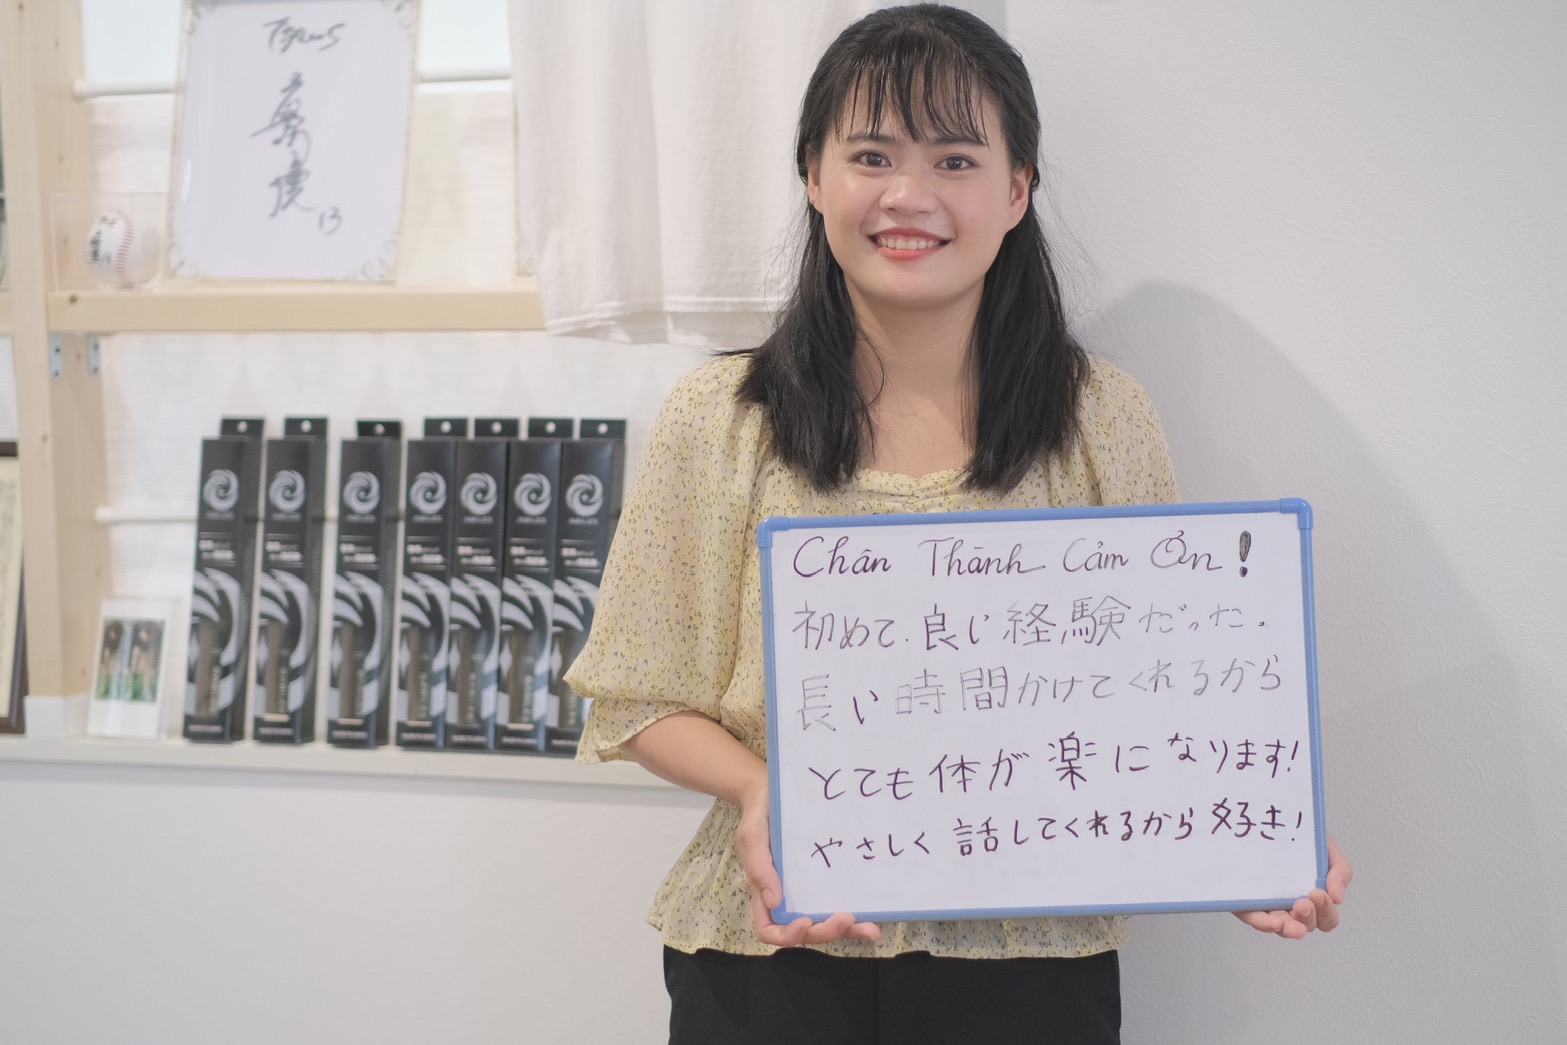 Tigers
13
Chân Thành Cảm Ơn!
初めて.良い経験だった。
長い時間かけてくれるから
とても体が楽になります!
やさしく話してくれるから好き!